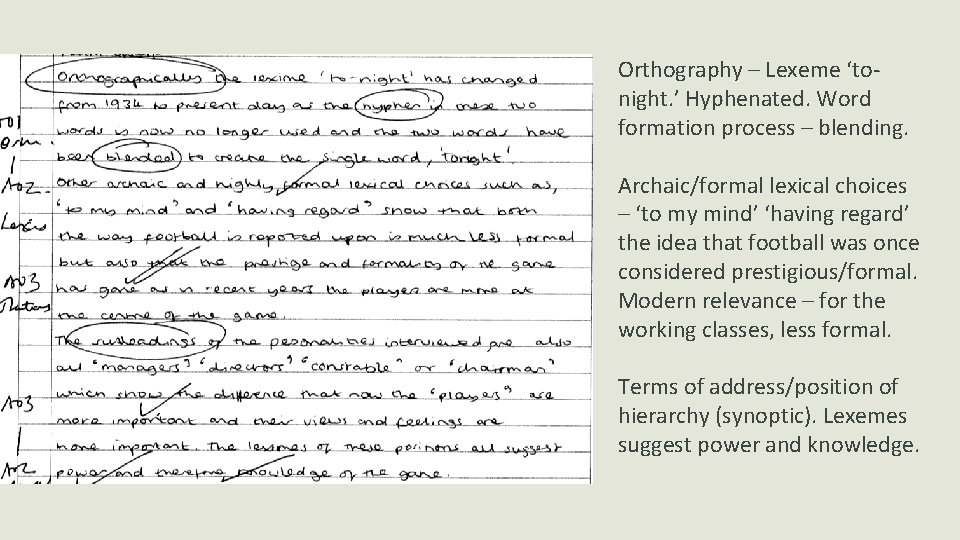 Orthographically the lexime 'to-night' has changed
from 1934 to present day as the hyphen in these two
words is now no longer used and the two words have
been blended to create the single word, 'Tonight'.
Other archaic and highly formal lexical choices such as,
"to my mind" and "having regard" show that both
the way football is reported upon is much less formal
but also that the prestige and formality of the game
has gone as in recent years the players are more at
the centre of the game.
The subheadings of the personalities interviewed are also
all "managers" "directors" "constable" or "chairman"
which show the difference that now the "players" are
more important and their views and feelings are
more important. The lexemes of these positions all suggest
power and therefore knowledge of the game.
AO1
AO2
Lexis
AO3
AO3
AO2
Orthography – Lexeme ‘to-
night.’ Hyphenated. Word
formation process – blending.
Archaic/formal lexical choices
– ‘to my mind’ ‘having regard’
the idea that football was once
considered prestigious/formal.
Modern relevance – for the
working classes, less formal.
Terms of address/position of
hierarchy (synoptic). Lexemes
suggest power and knowledge.